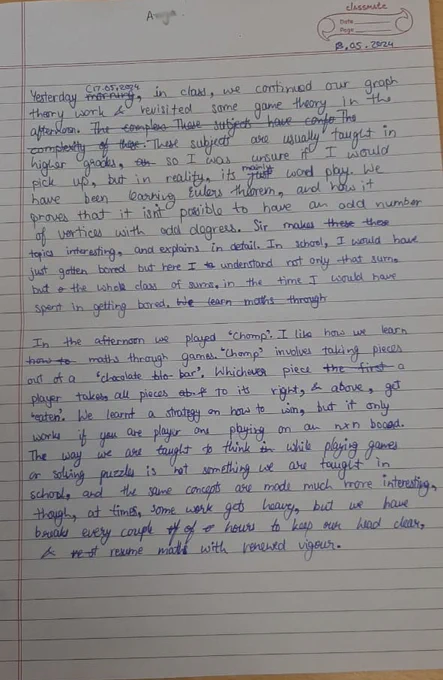 classmate
Date
Page
18.05.2024
(17.05.2024
Yesterday morning, in class, we continued our graph
theory work & revisited some game theory in the
afternoon. The complexa These subjects have confo The
complexity of these. These subjects are usually taught in
higher grades, so I was unsure if I would
mainly
pick up, but in reality, its just word play. We
have been learning Eulers theorem, and how it
proves that it isn't possible to have an odd number
of vertices with odd degrees. Sir makes these these
topics interesting, and explains in detail. In school, I would have
just gotten bored but here I understand not only that sum,
but the whole class of sums, in the time I would have
spent in getting bored. We learn maths through
In the afternoon we played "Chomp". I like how we learn
how to maths through games. "Chomp" involves taking pieces
out of a "chocolate blo bar". Whichever piece the first a
player takes all pieces to its right, & above, get
"eaten". We learnt a strategy on how to win, but it only
works if you are player one playing on an nxn board.
The way we are taught to think in while playing games
or solving puzzles is not something we are taught in
school, and the same concepts are made much more interesting,
though, at times, some work gets heavy, but we have
breaks every couple of hours to keep our head clear,
& resume maths with renewed vigour.